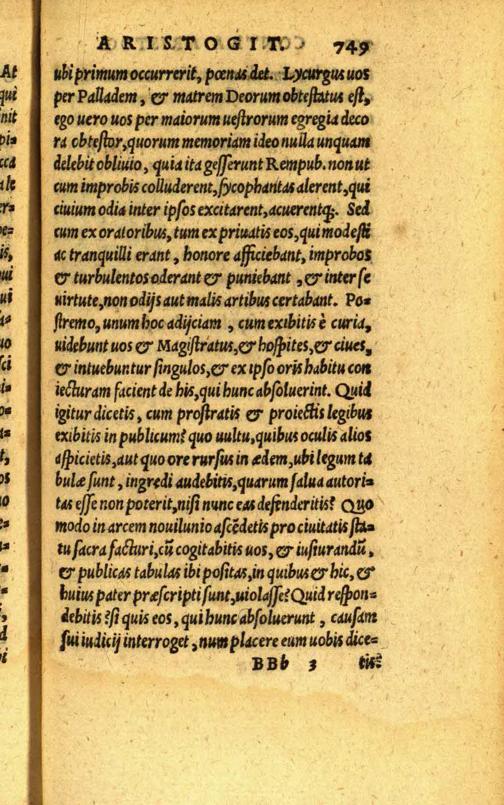 ARISTOGIT. 749
ubi primum occurrerit, pœnas det. Lycurgus uos
per Palladem, & matrem Deorum obtestatus est,
ego uero uos per maiorum uestrorum egregia deco
ra obtestor, quorum memoriam ideo nulla unquam
delebit obliuio, quia ita gesserunt Rempub. non ut
cum improbis colluderent, sycophantas alerent, qui
ciuium odia inter ipsos excitarent, acuerentq;. Sed
cum ex oratoribus, tum ex priuatis eos, qui modesti
ac tranquilli erant, honore afficiebant, improbos
& turbulentos oderant & puniebant, & inter se
uirtute, non odijs aut malis artibus certabant. Po=
stremo, unum hoc adijciam, cum exibitis è curia,
uidebunt uos & Magistratus, & hospites, & ciues,
& intuebuntur singulos, & ex ipso oris habitu con
iecturam facient de his, qui hunc absoluerint. Quid
igitur dicetis, cum prostratis & proiectis legibus
exibitis in publicum? quo uultu, quibus oculis alios
aspicietis, aut quo ore rursus in ædem, ubi legum ta
bulæ sunt, ingredi audebitis, quarum salua autori=
tas esse non poterit, nisi nunc eas defenderitis? Quo
modo in arcem nouilunio ascēdetis pro ciuitatis sta=
tu sacra facturi, cū cogitabitis uos, & iusiurandū,
& publicas tabulas ibi positas, in quibus & hic, &
huius pater præscripti sunt, uiolasse? Quid respon=
debitis? si quis eos, qui hunc absoluerunt, causam
sui iudicij interroget, num placere eum uobis dice=
BBb 3 tis?